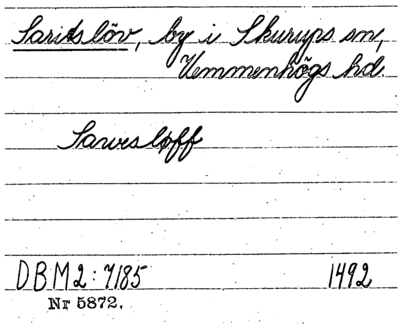 Saritslöv, by i Skurups sn,
Vemmenhögs hd.
Sarvesløff
DBM2:7185 1492
Nr 5872.